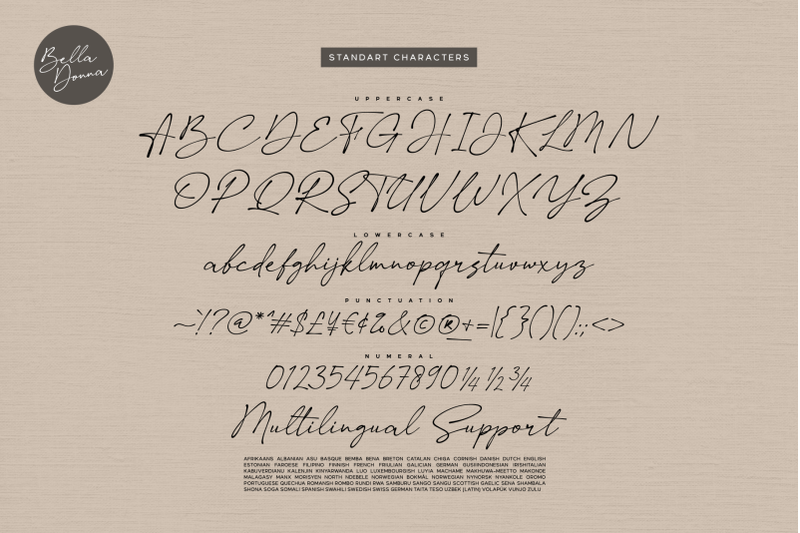 Bella
Donna
STANDART CHARACTERS
UPPERCASE
ABCDEFGHIJKLMN
OPQRSTUVWXYZ
LOWERCASE
abcdefghijklmnopqrstuvwxyz
PUNCTUATION
~`!?@*^#$£¥€¢%&©®±=|{}()():;<>
NUMERAL
012354567890¼ ½ ¾
Multilingual Support
AFRIKAANS ALBANIAN ASU BASQUE BEMBA BENA BRETON CATALAN CHIGA CORNISH DANISH DUTCH ENGLISH
ESTONIAN FAROESE FILIPINO FINNISH FRENCH FRIULIAN GALICIAN GERMAN GUSIIINDONESIAN IRISHITALIAN
KABUVERDIANU KALENJIN KINYARWANDA LUO LUXEMBOURGISH LUYIA MACHAME MAKHUWA-MEETTO MAKONDE
MALAGASY MANX MORISYEN NORTH NDEBELE NORWEGIAN BOKMÅL NORWEGIAN NYNORSK NYANKOLE OROMO
PORTUGUESE QUECHUA ROMANSH ROMBO RUNDI RWA SAMBURU SANGO SANGU SCOTTISH GAELIC SENA SHAMBALA
SHONA SOGA SOMALI SPANISH SWAHILI SWEDISH SWISS GERMAN TAITA TESO UZBEK (LATIN) VOLAPÜK VUNJO ZULU